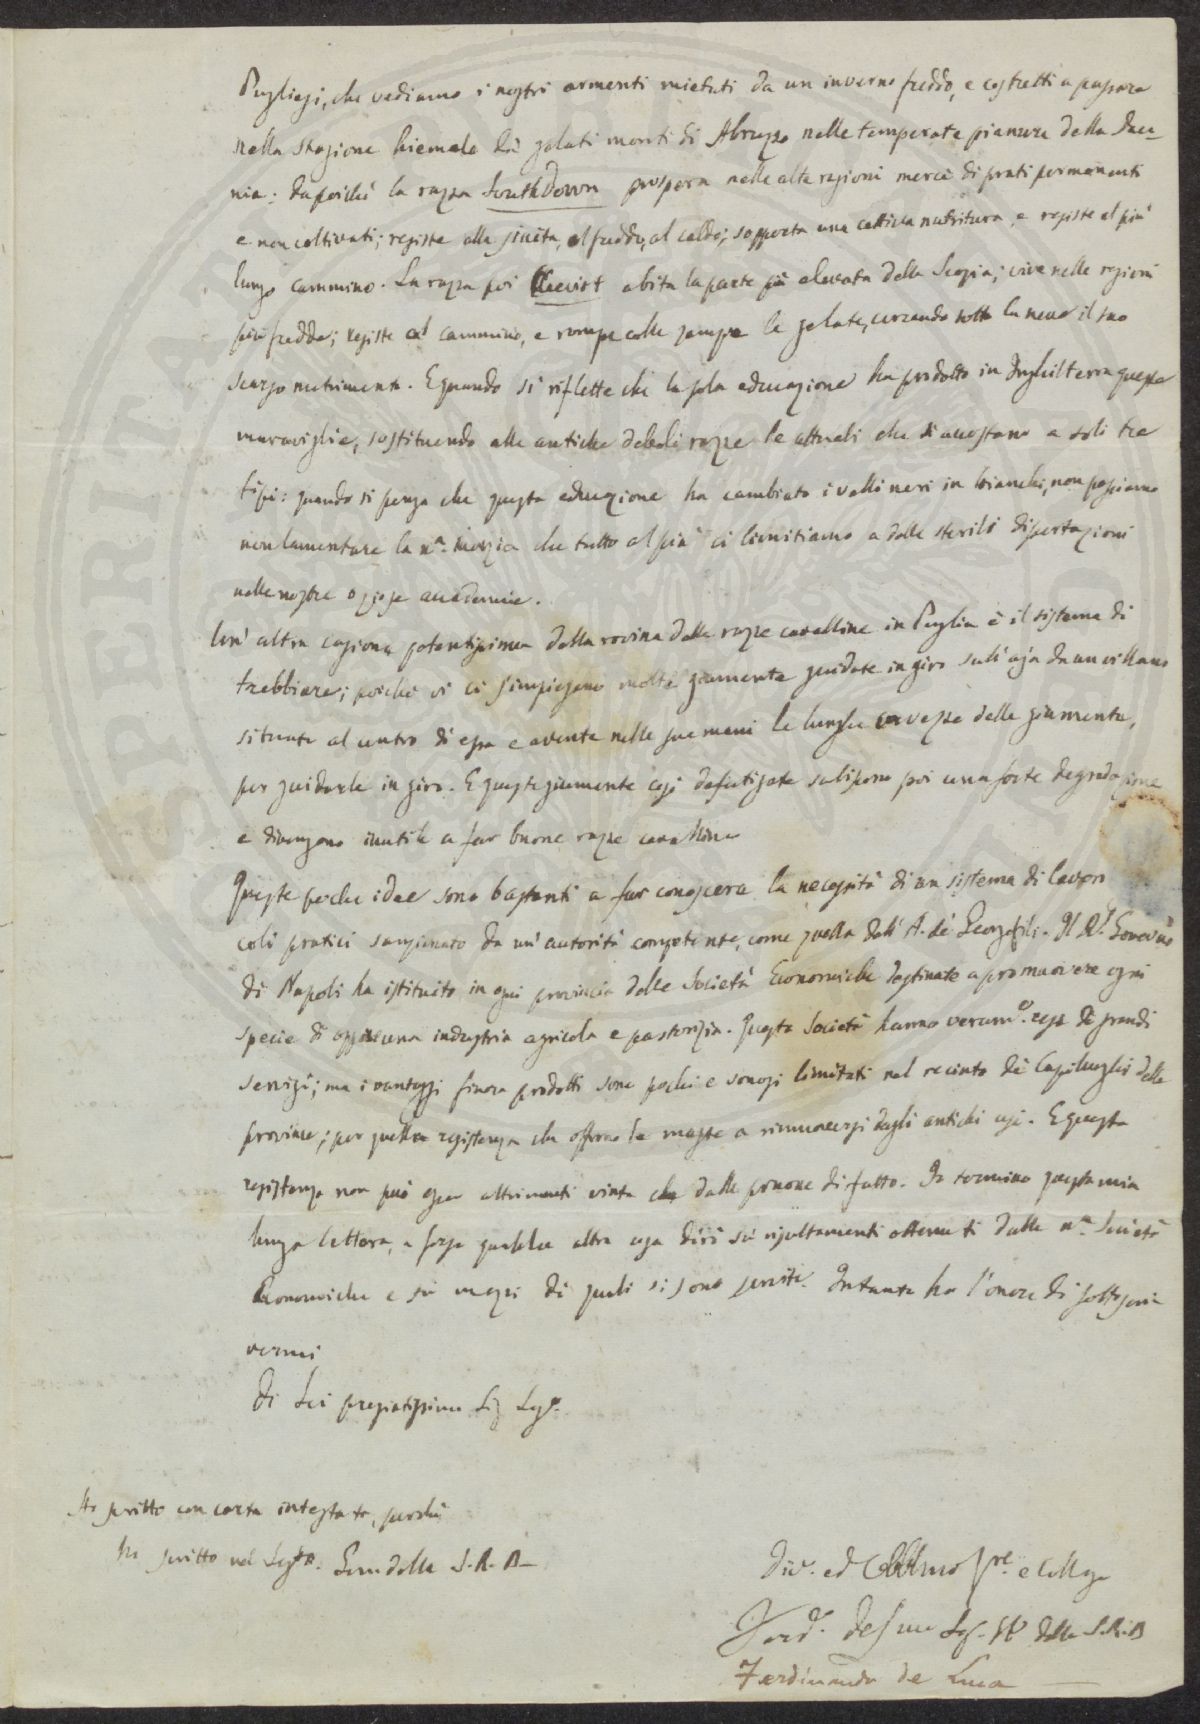 Pugliesi, che vediamo i nostri armenti mietuti da un inverno freddo, e costretti a passare
nella stagione hiemale da' gelati monti di Abruzzo nelle temperate pianure della Dau-
nia: dapoichè la razza SouthDown prospera nelle alte regioni mercè di prati permanenti
e non coltivati; resiste alla siccità, al freddo, al caldo; sopporta una cattiva nutritura, e resiste al più
lungo cammino. La razza poi Cheviot abita la parte più elevata della Scozia; vive nelle regioni
più fredde; resiste al cammino, e rompe colle zampe le gelate, cercando sotto la neve il suo
scarso nutrimento. E quando si riflette che la sola educazione ha prodotto in Inghilterra queste
maraviglie, sostituendo alle antiche deboli razze le attuali che si accostano a soli tre
tipi: quando si pensa che questa educazione ha cambiato i velli neri in bianchi, non possiamo
non lamentare la nª. inerzia che tutto al più ci limitiamo a delle sterili dissertazioni
nelle nostre oziose accademie.
Un' altra cagione potentissima della rovina delle razze cavalline in Puglia è il sistema di
trebbiare; poichè vi ci s'impiegano molte giumente guidate in giro sull'aja da un villano
situato al centro di essa e avente nelle sue mani le lunghe cavezze delle giumente,
per guidarle in giro. E queste giumente così defatigate subiscono poi una forte degradazione
e divengono inutili a far buone razze cavalline
Queste poche idee sono bastanti a far conoscere la necessità di un sistema di lavori
coli pratici sanzionato da un' autorità competente, come quella dell' A. de' Georgofili. Il Rl. Governo
di Napoli ha istituito in ogni provincia delle Società Economiche destinate a promuovere ogni
specie di industria agricola e pastorizia. Queste Società hanno veramº. reso de' grandi
servigi; ma i vantaggi finora prodotti sono pochi e sonosi limitati nel recinto de' Capiluoghi delle
province; per quella resistenza che offrono le masse a rimuoversi dagli antichi usi. E questa
resistenza non può esser altrimenti vinta che dalle persone di fatto. Io termino questa mia
lunga lettera, e forse qualche altra cosa dirò su' risultamenti ottenuti dalle nª. Società
Economiche e su' mezzi di quali si sono servite. Intanto ho l'onore di sottoscri-
vermi
Di Lei pregiatissimo Sig Segº.
Ho scritto con carta intestata, perchè
ho scritto nel Segº. della S.R.B—
Div. ed Obblmo Sre. e Collega
Ferdº. de Luca Seg. Pº della S.R.B
Ferdinando de Luca